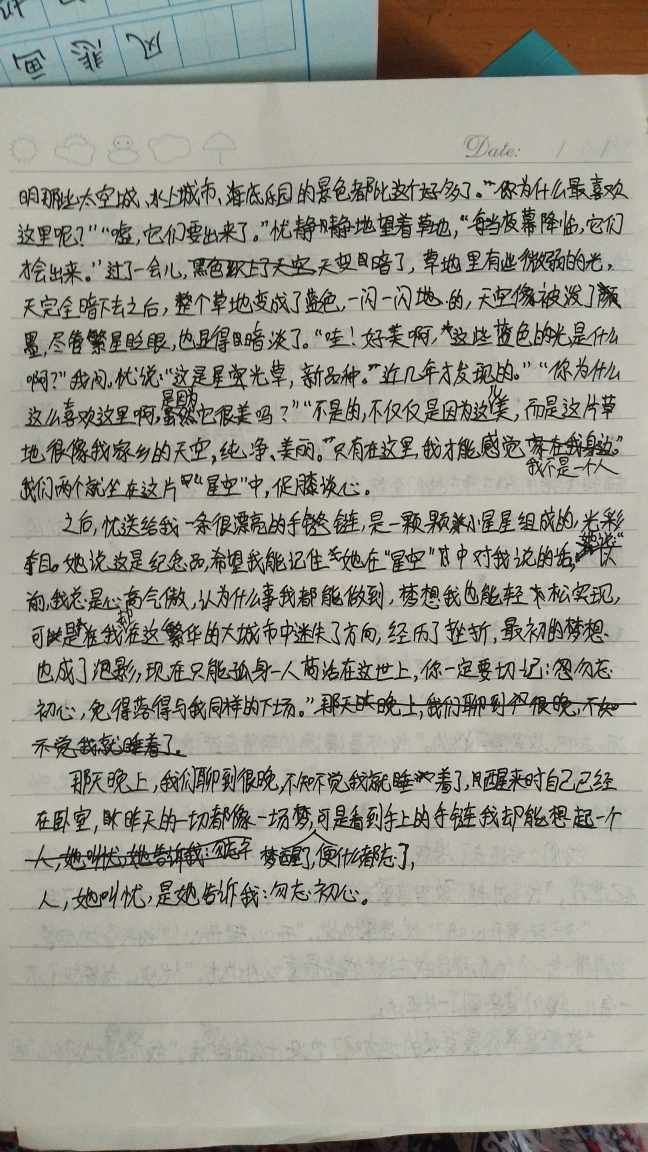 风 悲 画
Date: / /
明那些太空城、水上城市、海底乐园的景色都比这个好多了。”“你为什么最喜欢
这里呢？”“嘘，它们要出来了。”忧静静地望着草地，“每当夜幕降临，它们
才会出来。”过了一会儿，天变暗了，草地里有些微弱的光，
天完全暗下去之后，整个草地变成了蓝色，一闪一闪地的，天空像被泼了颜
墨，尽管繁星眨眼，也显得暗淡了。“哇！好美啊，这些蓝色的光是什么
啊？”我问。忧说：“这是星空光草，新品种。”近几年才发现的。”“你为什么
这么喜欢这里啊，是因为它很美吗？”“不是的，不仅仅是因为这儿美，而是这片草
地很像我家乡的天空，纯净、美丽。”只有在这里，我才能感觉我不是一个人
我们两个就坐在这片“星空”中，促膝谈心。
之后，忧送给我一条很漂亮的手链，是一颗颗小星星组成的，光彩
夺目。她说这是纪念品，希望我能记住她在“星空”中对我说的话，她说“以
前，我总是心高气傲，认为什么事我都能做到，梦想我也能轻松实现，
可是我在这繁华的大城市中迷失了方向，经历了挫折，最初的梦想
也成了泡影，现在只能孤身一人苟活在这世上，你一定要切记：勿忘
初心，免得落得与我同样的下场。”那天晚上，我们聊到很晚，不知
不觉我就睡着了。
那天晚上，我们聊到很晚，不知不觉我就睡着了，醒来时自己已经
在卧室，昨天的一切都像一场梦，梦醒了，便什么都忘了，可是看到手上的手链我却能想起一个
人，她叫忧，她告诉我：勿忘初
人，她叫忧，是她告诉我：勿忘初心。